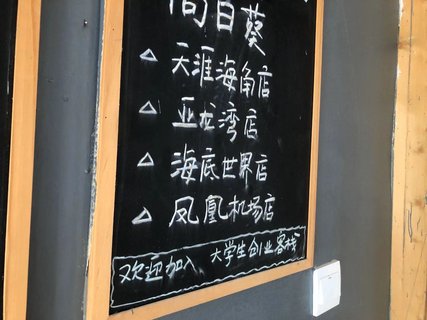 向日葵
△ 天涯海角店
△ 亚龙湾店
△ 海底世界店
△ 凤凰机场店
欢迎加入 大学生创业客栈